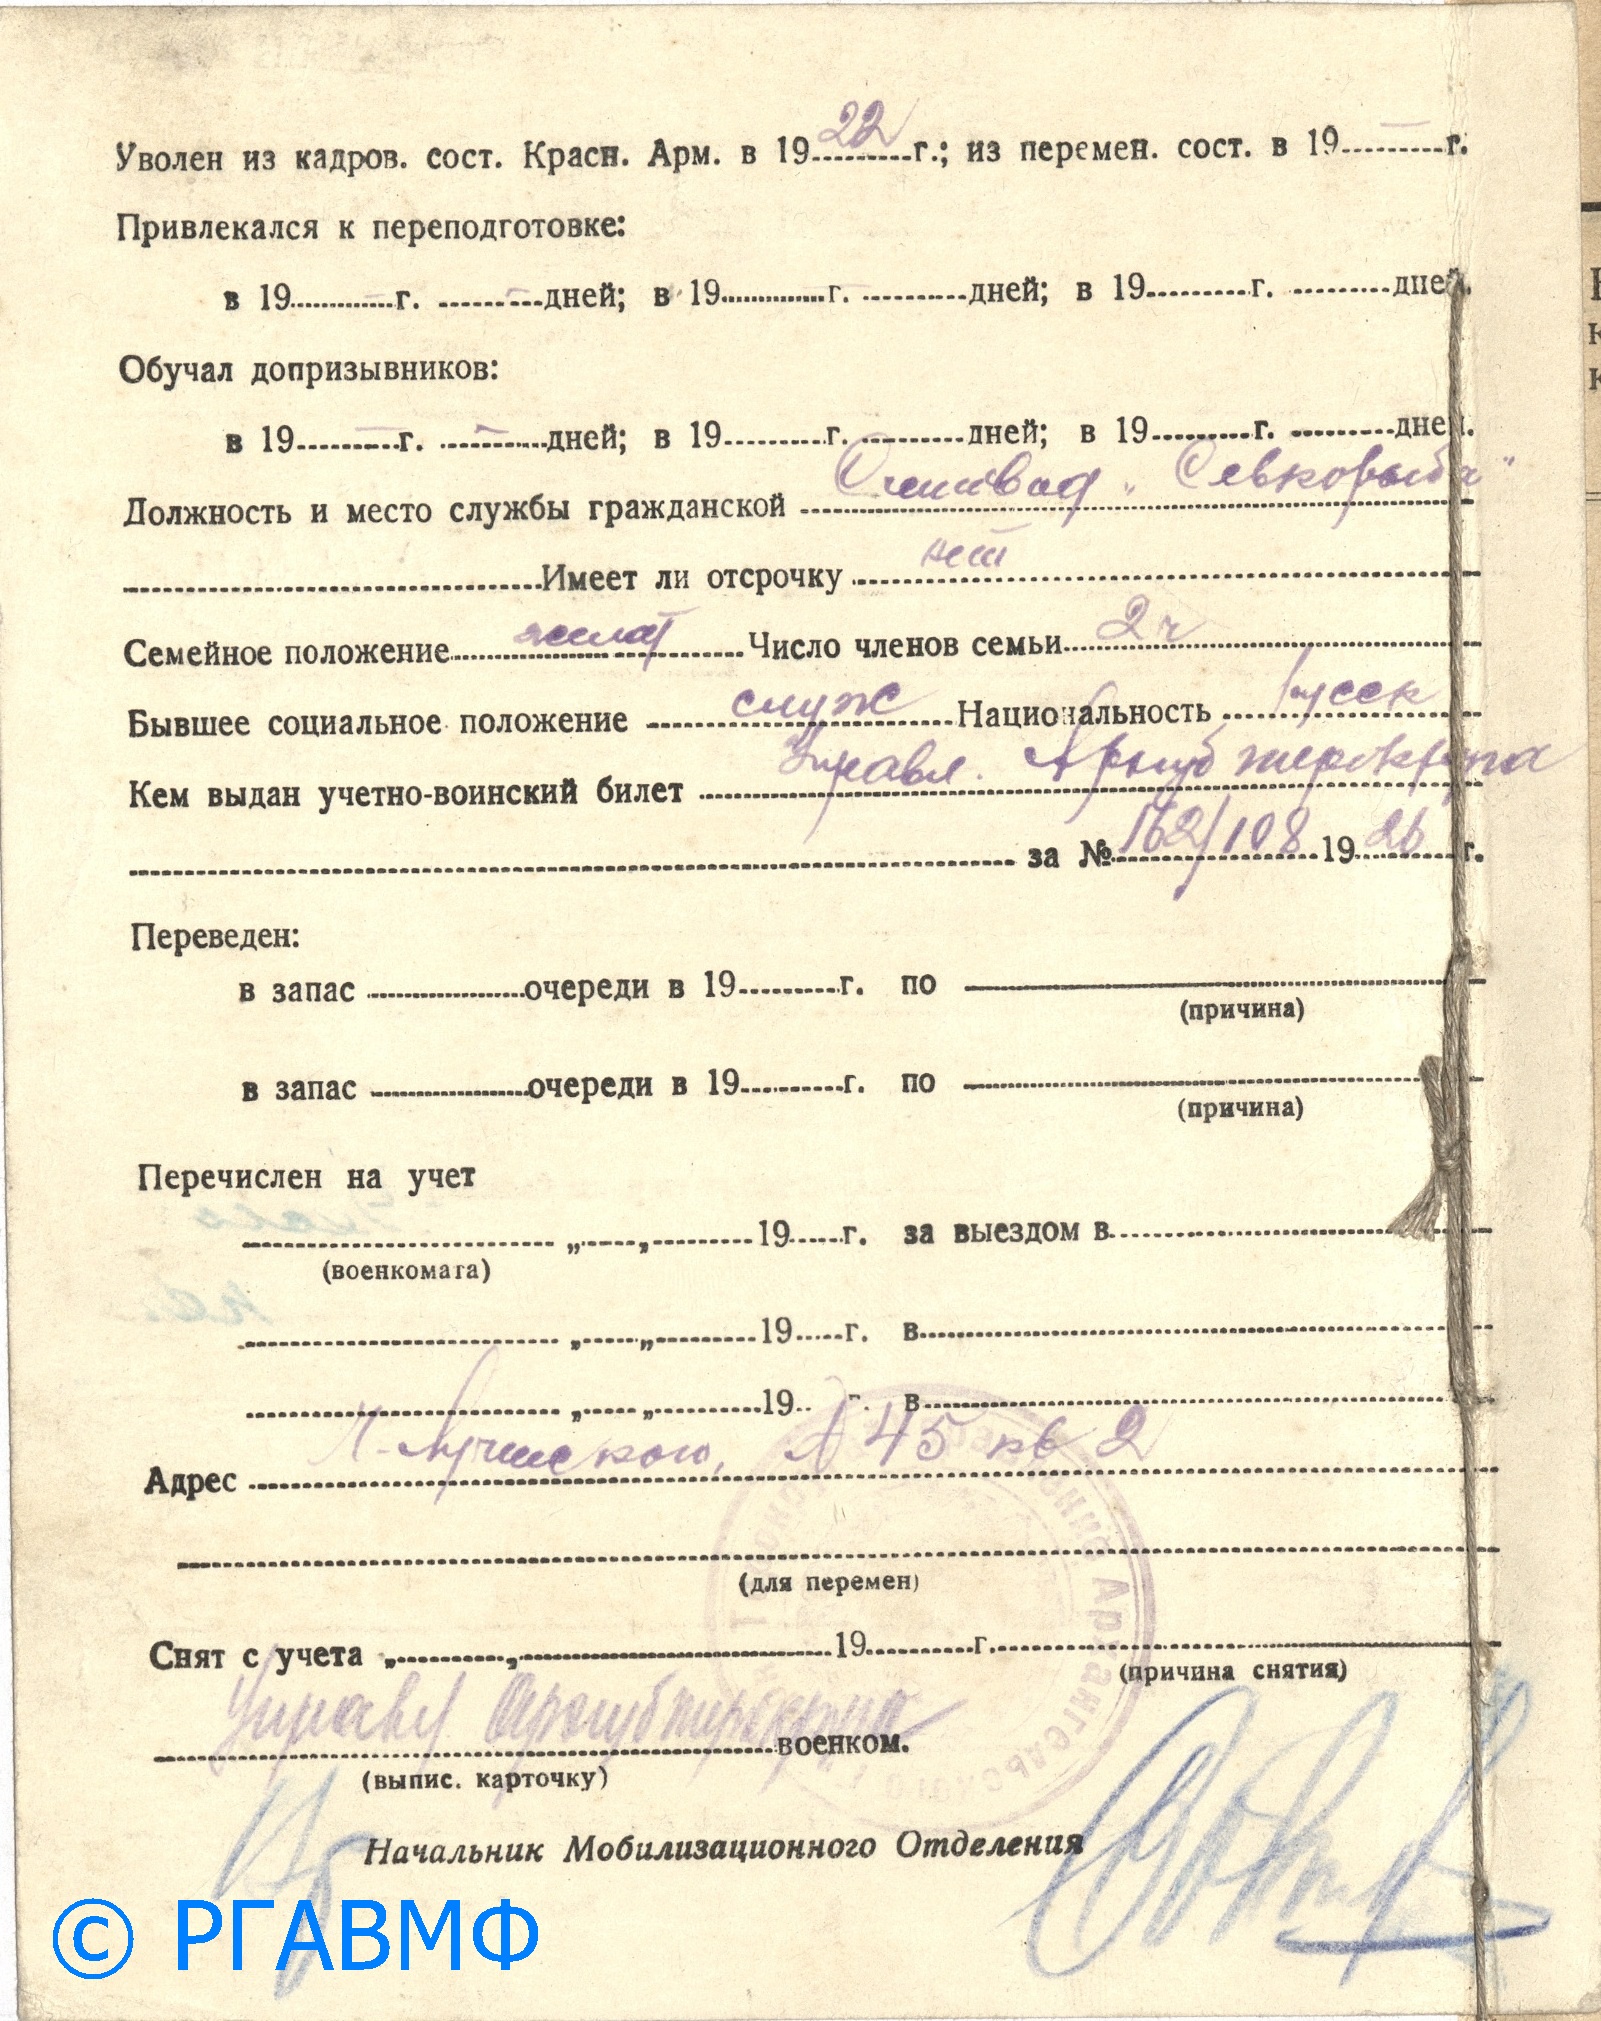 Уволен из кадров. сост. Красн. Арм. в 1922 г.; из перемен. сост. в 19 — г.
Привлекался к переподготовке:
в 19 — г. — дней; в 19 г. дней; в 19 г. дней.
Обучал допризывников:
в 19 — г. — дней; в 19 г. дней; в 19 г. дней.
Должность и место службы гражданской „Севкорыба“
Имеет ли отсрочку нет
Семейное положение женат Число членов семьи 2 ч
Бывшее социальное положение служ Национальность русск
Кем выдан учетно-воинский билет Управл.
за № 162/108 1926 г.
Переведен:
в запас очереди в 19 г. по
(причина)
в запас очереди в 19 г. по
(причина)
Перечислен на учет
„ „ 19 г. за выездом в
(военкомата)
„ „ 19 г. в
„ „ 19 г. в
Адрес 45 кв 2
(для перемен)
Снят с учета „ „ 19 г.
(причина снятия)
Управл военком.
(выпис. карточку)
Начальник Мобилизационного Отделения
© РГАВМФ